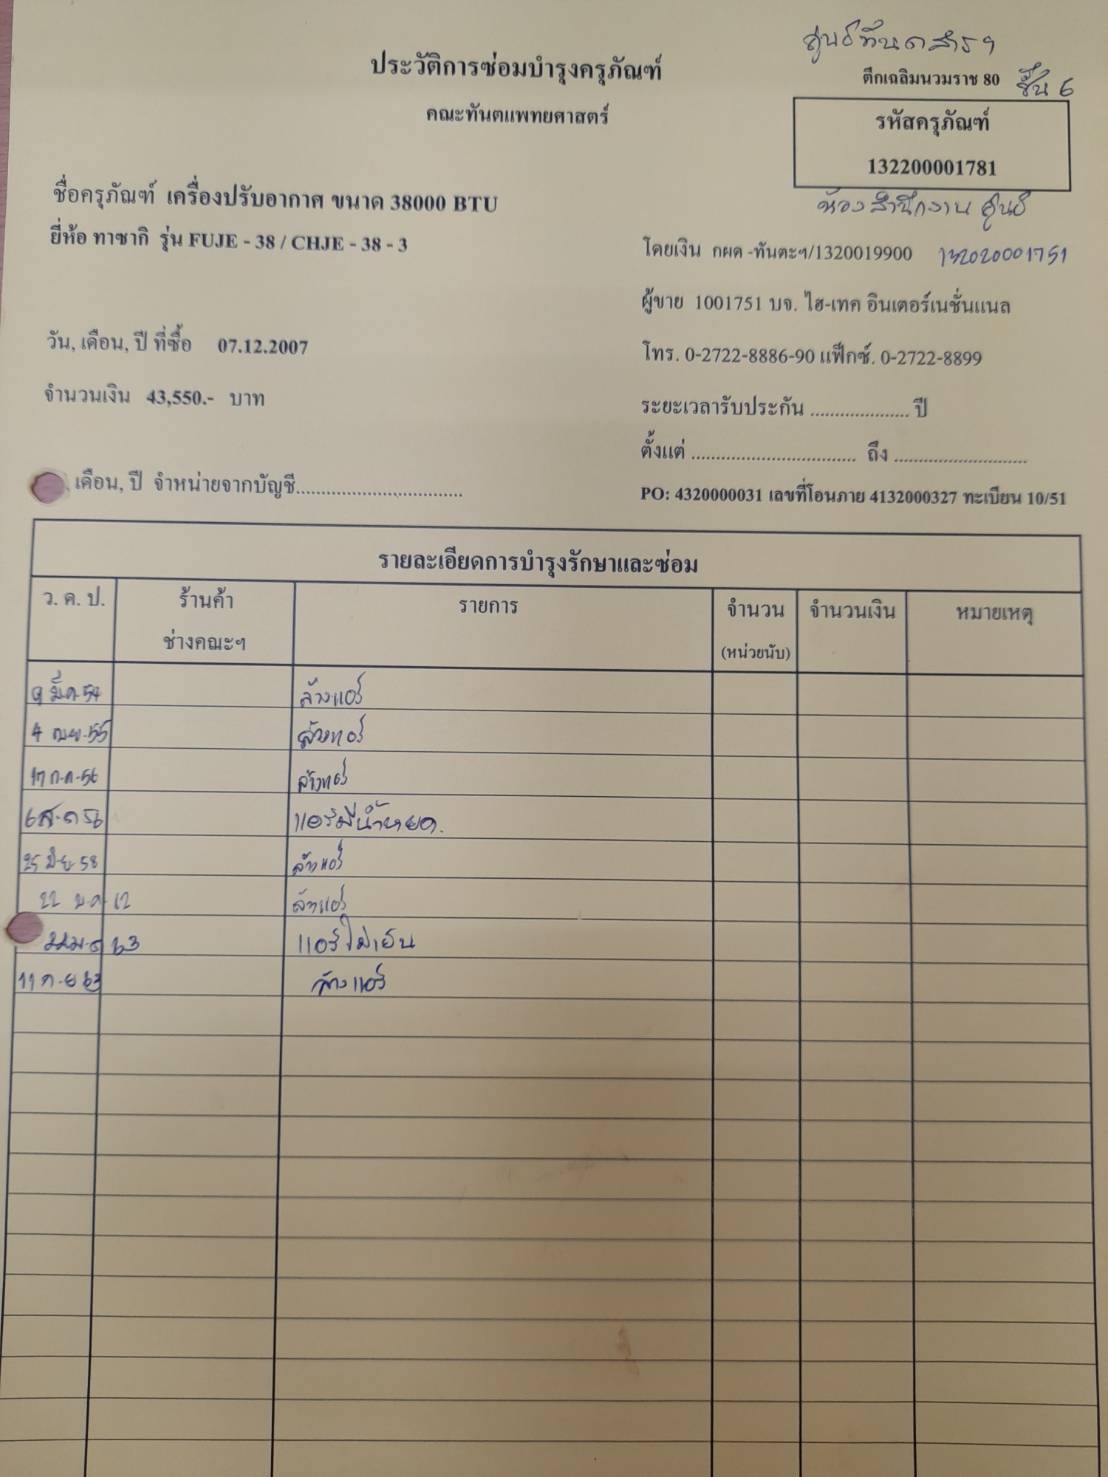 ศูนย์ทันตสารฯ
ประวัติการซ่อมบำรุงครุภัณฑ์
ตึกเฉลิมนวมราช 80 ชั้น 6
คณะทันตแพทยศาสตร์
รหัสครุภัณฑ์
132200001781
ห้องสำนักงาน ศูนย์
ชื่อครุภัณฑ์ เครื่องปรับอากาศ ขนาด 38000 BTU
ยี่ห้อ ทาซากิ รุ่น FUJE - 38 / CHJE - 38 - 3
โดยเงิน กผด -ทันตะฯ/1320019900 132020001751
ผู้ขาย 1001751 บจ. ไฮ-เทค อินเตอร์เนชั่นแนล
วัน, เดือน, ปี ที่ซื้อ 07.12.2007
โทร. 0-2722-8886-90 แฟ็กซ์. 0-2722-8899
จำนวนเงิน 43,550.- บาท
ระยะเวลารับประกัน .................... ปี
ตั้งแต่ ................................. ถึง ...........................
เดือน, ปี จำหน่ายจากบัญชี.................................
PO: 4320000031 เลขที่โอนภาย 4132000327 ทะเบียน 10/51
รายละเอียดการบำรุงรักษาและซ่อม
ว. ด. ป. ร้านค้า รายการ จำนวน จำนวนเงิน หมายเหตุ
ช่างคณะฯ (หน่วยนับ)
9 มี.ค 54 ล้างแอร์
4 เม.ย. 55 ล้างแอร์
17 ก.ค. 56 ล้างแอร์
6 ส.ค 56 แอร์มีน้ำหยด.
25 มิ.ย. 58 ล้างแอร์
22 พ.ค 62 ล้างแอร์
22 ม.ค 63 แอร์ไม่เย็น
11 ก.ย 63 ล้างแอร์